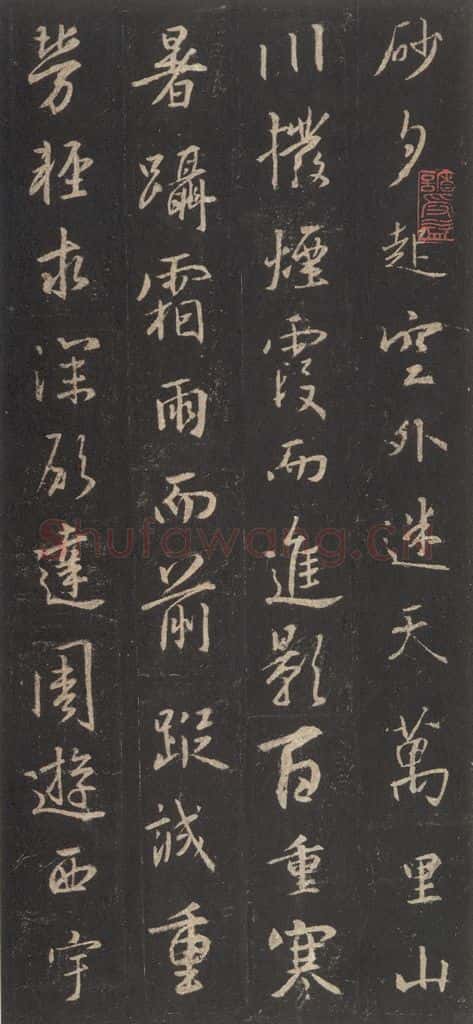 砂夕起空外迷天萬里山
川撥煙霞而進影百重寒
暑躡霜雨而前蹤誠重
勞輕求深願達周遊西宇
Shufawang.cn